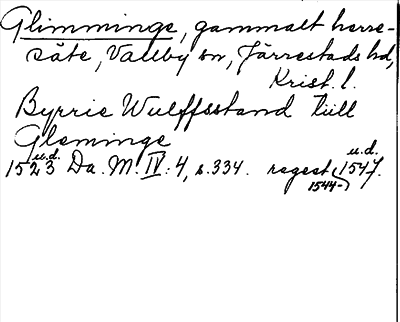 Glimminge, gammalt herre-
säte, Vallby sn, Järrestads hd,
Krist. l.
Byrrie Wulffsstand tüll
Gleminge
u.d. u.d.
1523 Da. M. IV: 4, s. 334. regest 1547.
1544-